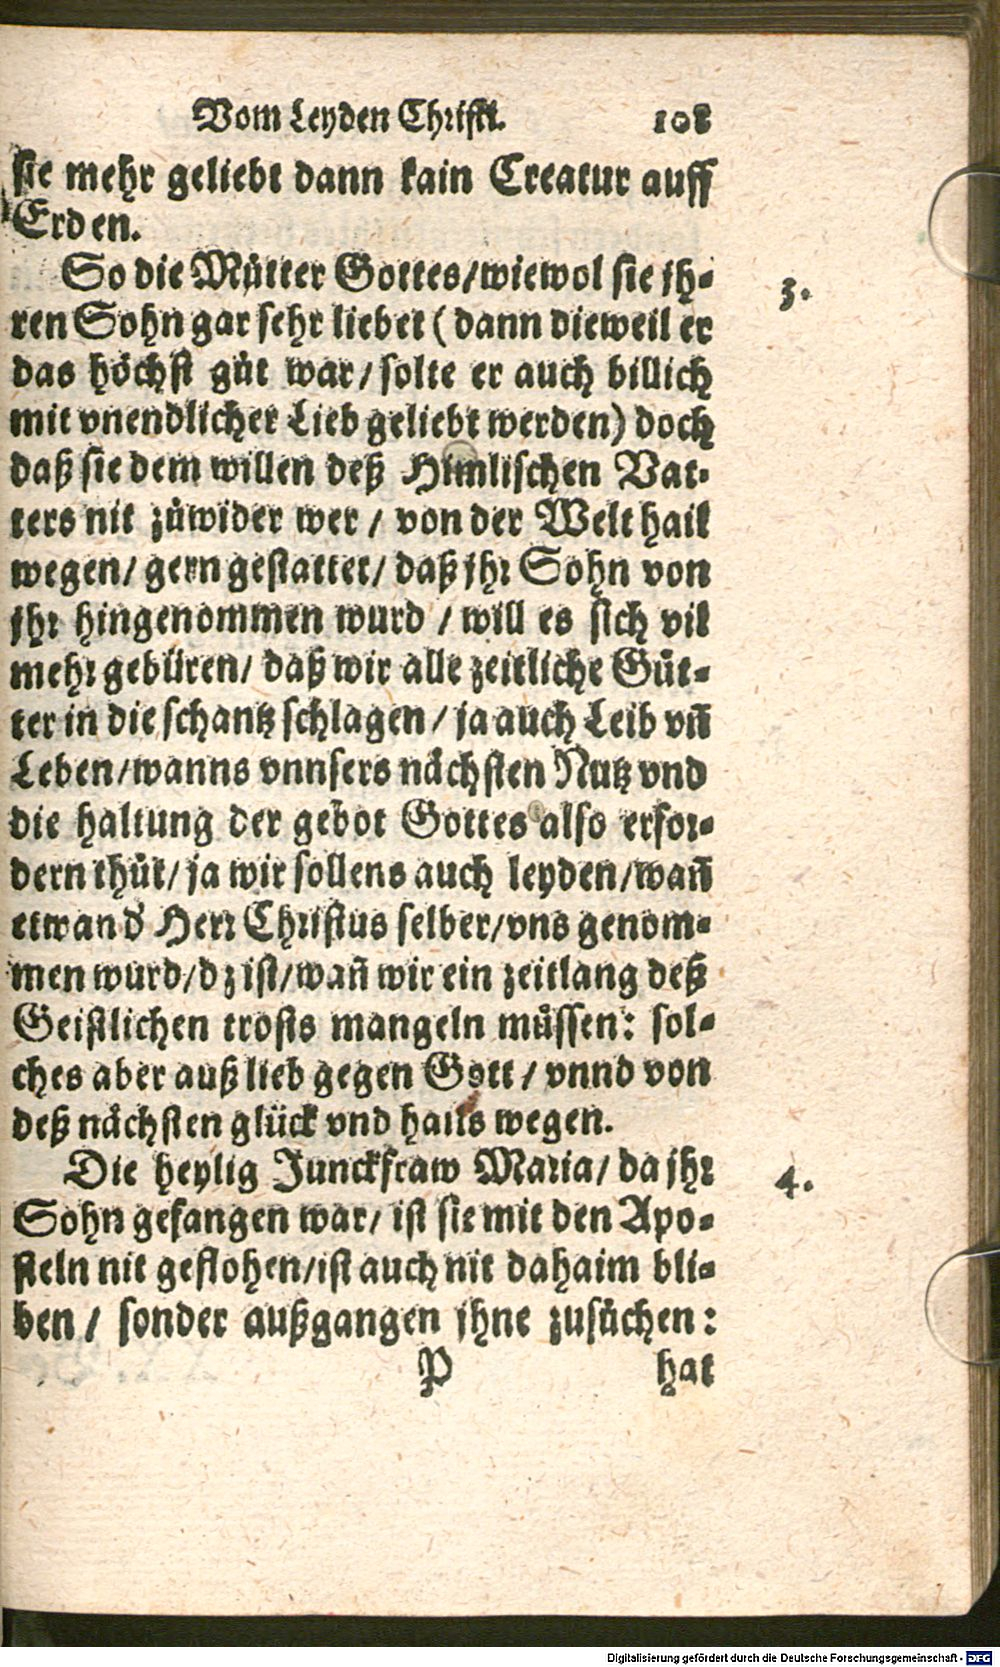 Vom Leyden Christi. 108
sie mehr geliebt dann kain Creatur auff
Erden.
So die Mütter Gottes/wiewol sie jh-
3.
ren Sohn gar sehr liebet (dann dieweil er
das höchst gůt war/solte er auch billich
mit vnendlicher Lieb geliebt werden) doch
daß sie dem willen deß Himlischen Vat-
ters nit zůwider wer/ von der Welt hail
wegen/ gern gestattet/ daß jhr Sohn von
jhr hingenommen wurd/ will es sich vil
mehr gebüren/ daß wir alle zeitliche Gůt-
ter in die schantz schlagen/ ja auch Leib vñ
Leben/wanns vnnsers nächsten Nutz vnd
die haltung der gebot Gottes also erfor-
dern thůt/ ja wir sollens auch leyden/wañ
etwan d̕ Herr Christus selber/vns genom-
men wurd/dz ist/wañ wir ein zeitlang deß
Geistlichen trosts mangeln müssen: sol-
ches aber auß lieb gegen Gott/ vnnd von
deß nächsten glück vnd hails wegen.
Die heylig Junckfraw Maria/ da jhr
4.
Sohn gefangen war/ ist sie mit den Apo-
steln nit geflohen/ist auch nit dahaim bli-
ben/ sonder außgangen jhne zusůchen:
P hat
Digitalisierung gefördert durch die Deutsche Forschungsgemeinschaft - DFG